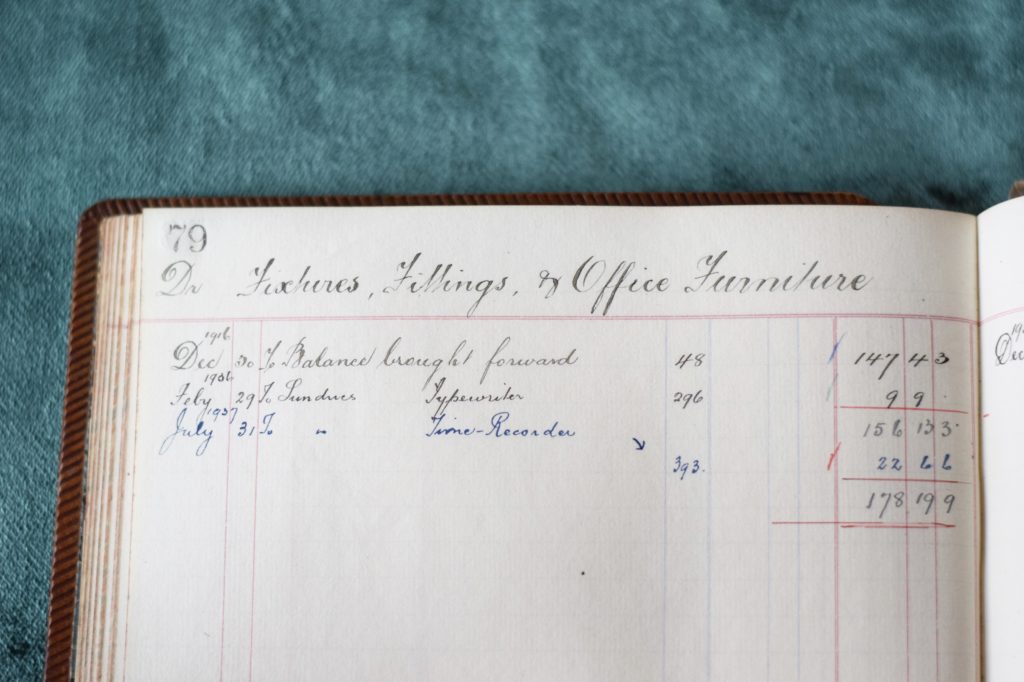 79
Dr Fixtures, Fittings, & Office Furniture
1916
Dec 30 To Balance brought forward 48 147 4 3
1936
Feby 29 To Sundries Typewriter 296 9 9 .
1937
July 31 To " Time-Recorder 156 13 3
393. 22 6 6
178 19 9
Dec